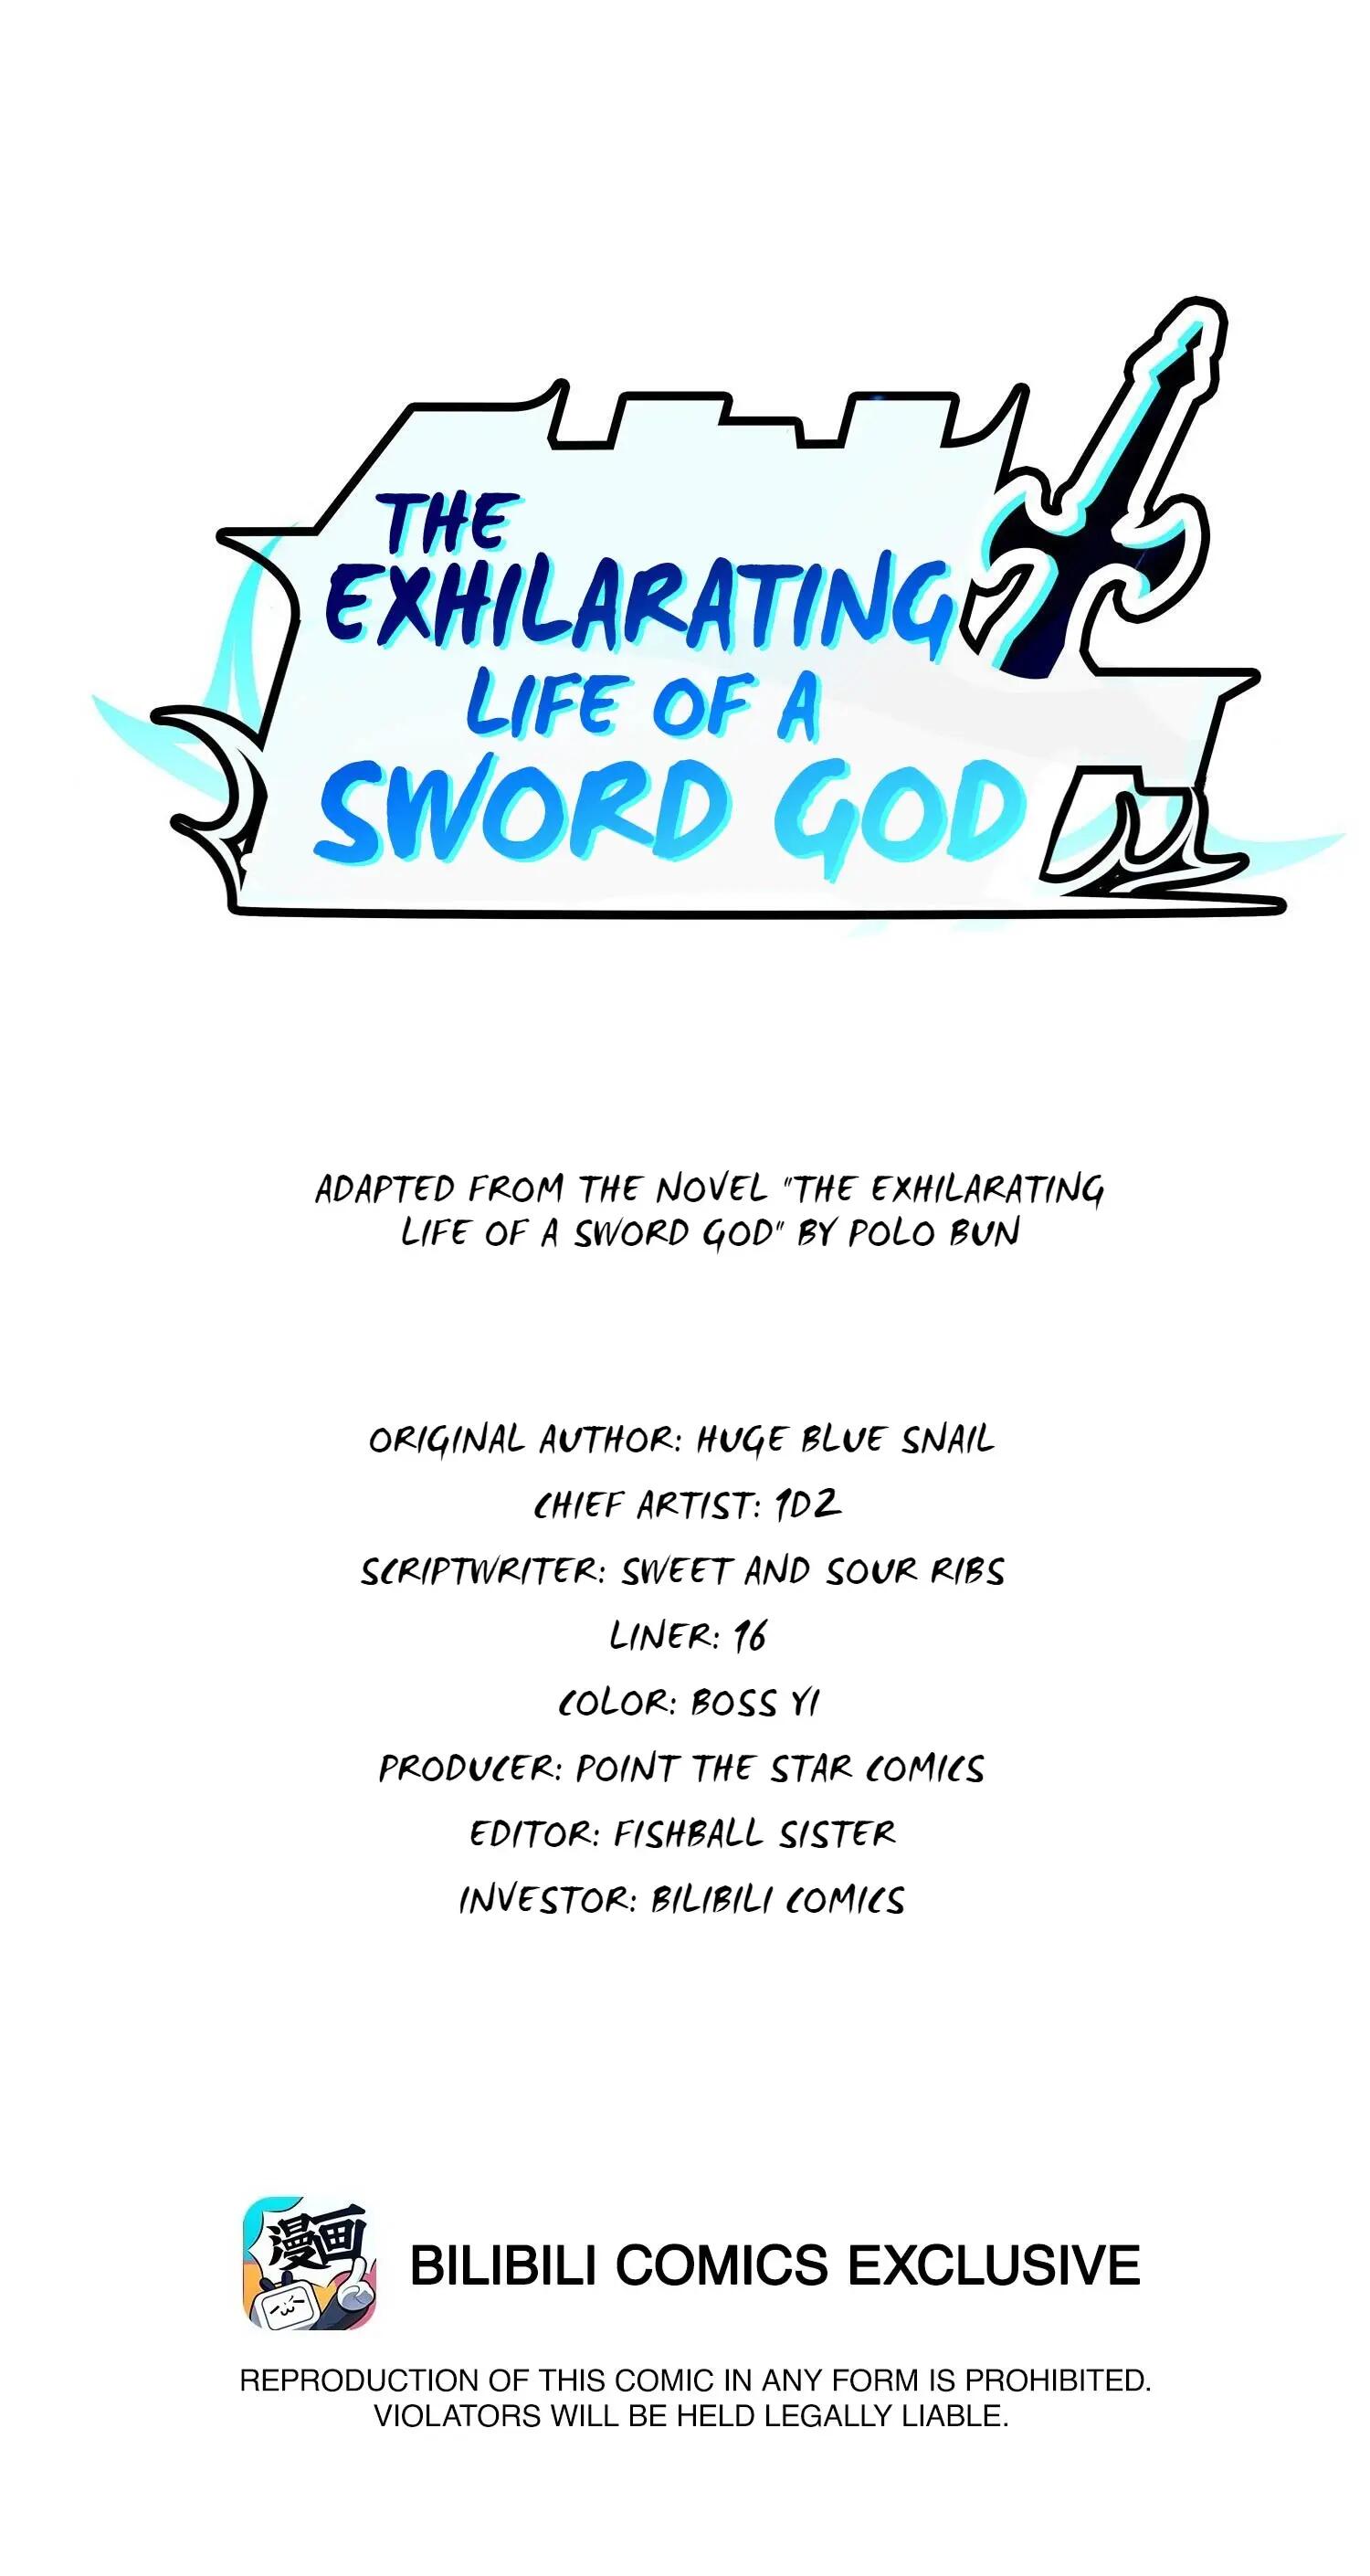 THE
EXHILARATING
LIFE OF A
SWORD GOD
ADAPTED FROM THE NOVEL "THE EXHILARATING
LIFE OF A SWORD GOD" BY POLO BUN
ORIGINAL AUTHOR: HUGE BLUE SNAIL
CHIEF ARTIST: 1D2
SCRIPTWRITER: SWEET AND SOUR RIBS
LINER: 16
COLOR: BOSS YI
PRODUCER: POINT THE STAR COMICS
EDITOR: FISHBALL SISTER
INVESTOR: BILIBILI COMICS
漫画
BILIBILI COMICS EXCLUSIVE
REPRODUCTION OF THIS COMIC IN ANY FORM IS PROHIBITED.
VIOLATORS WILL BE HELD LEGALLY LIABLE.